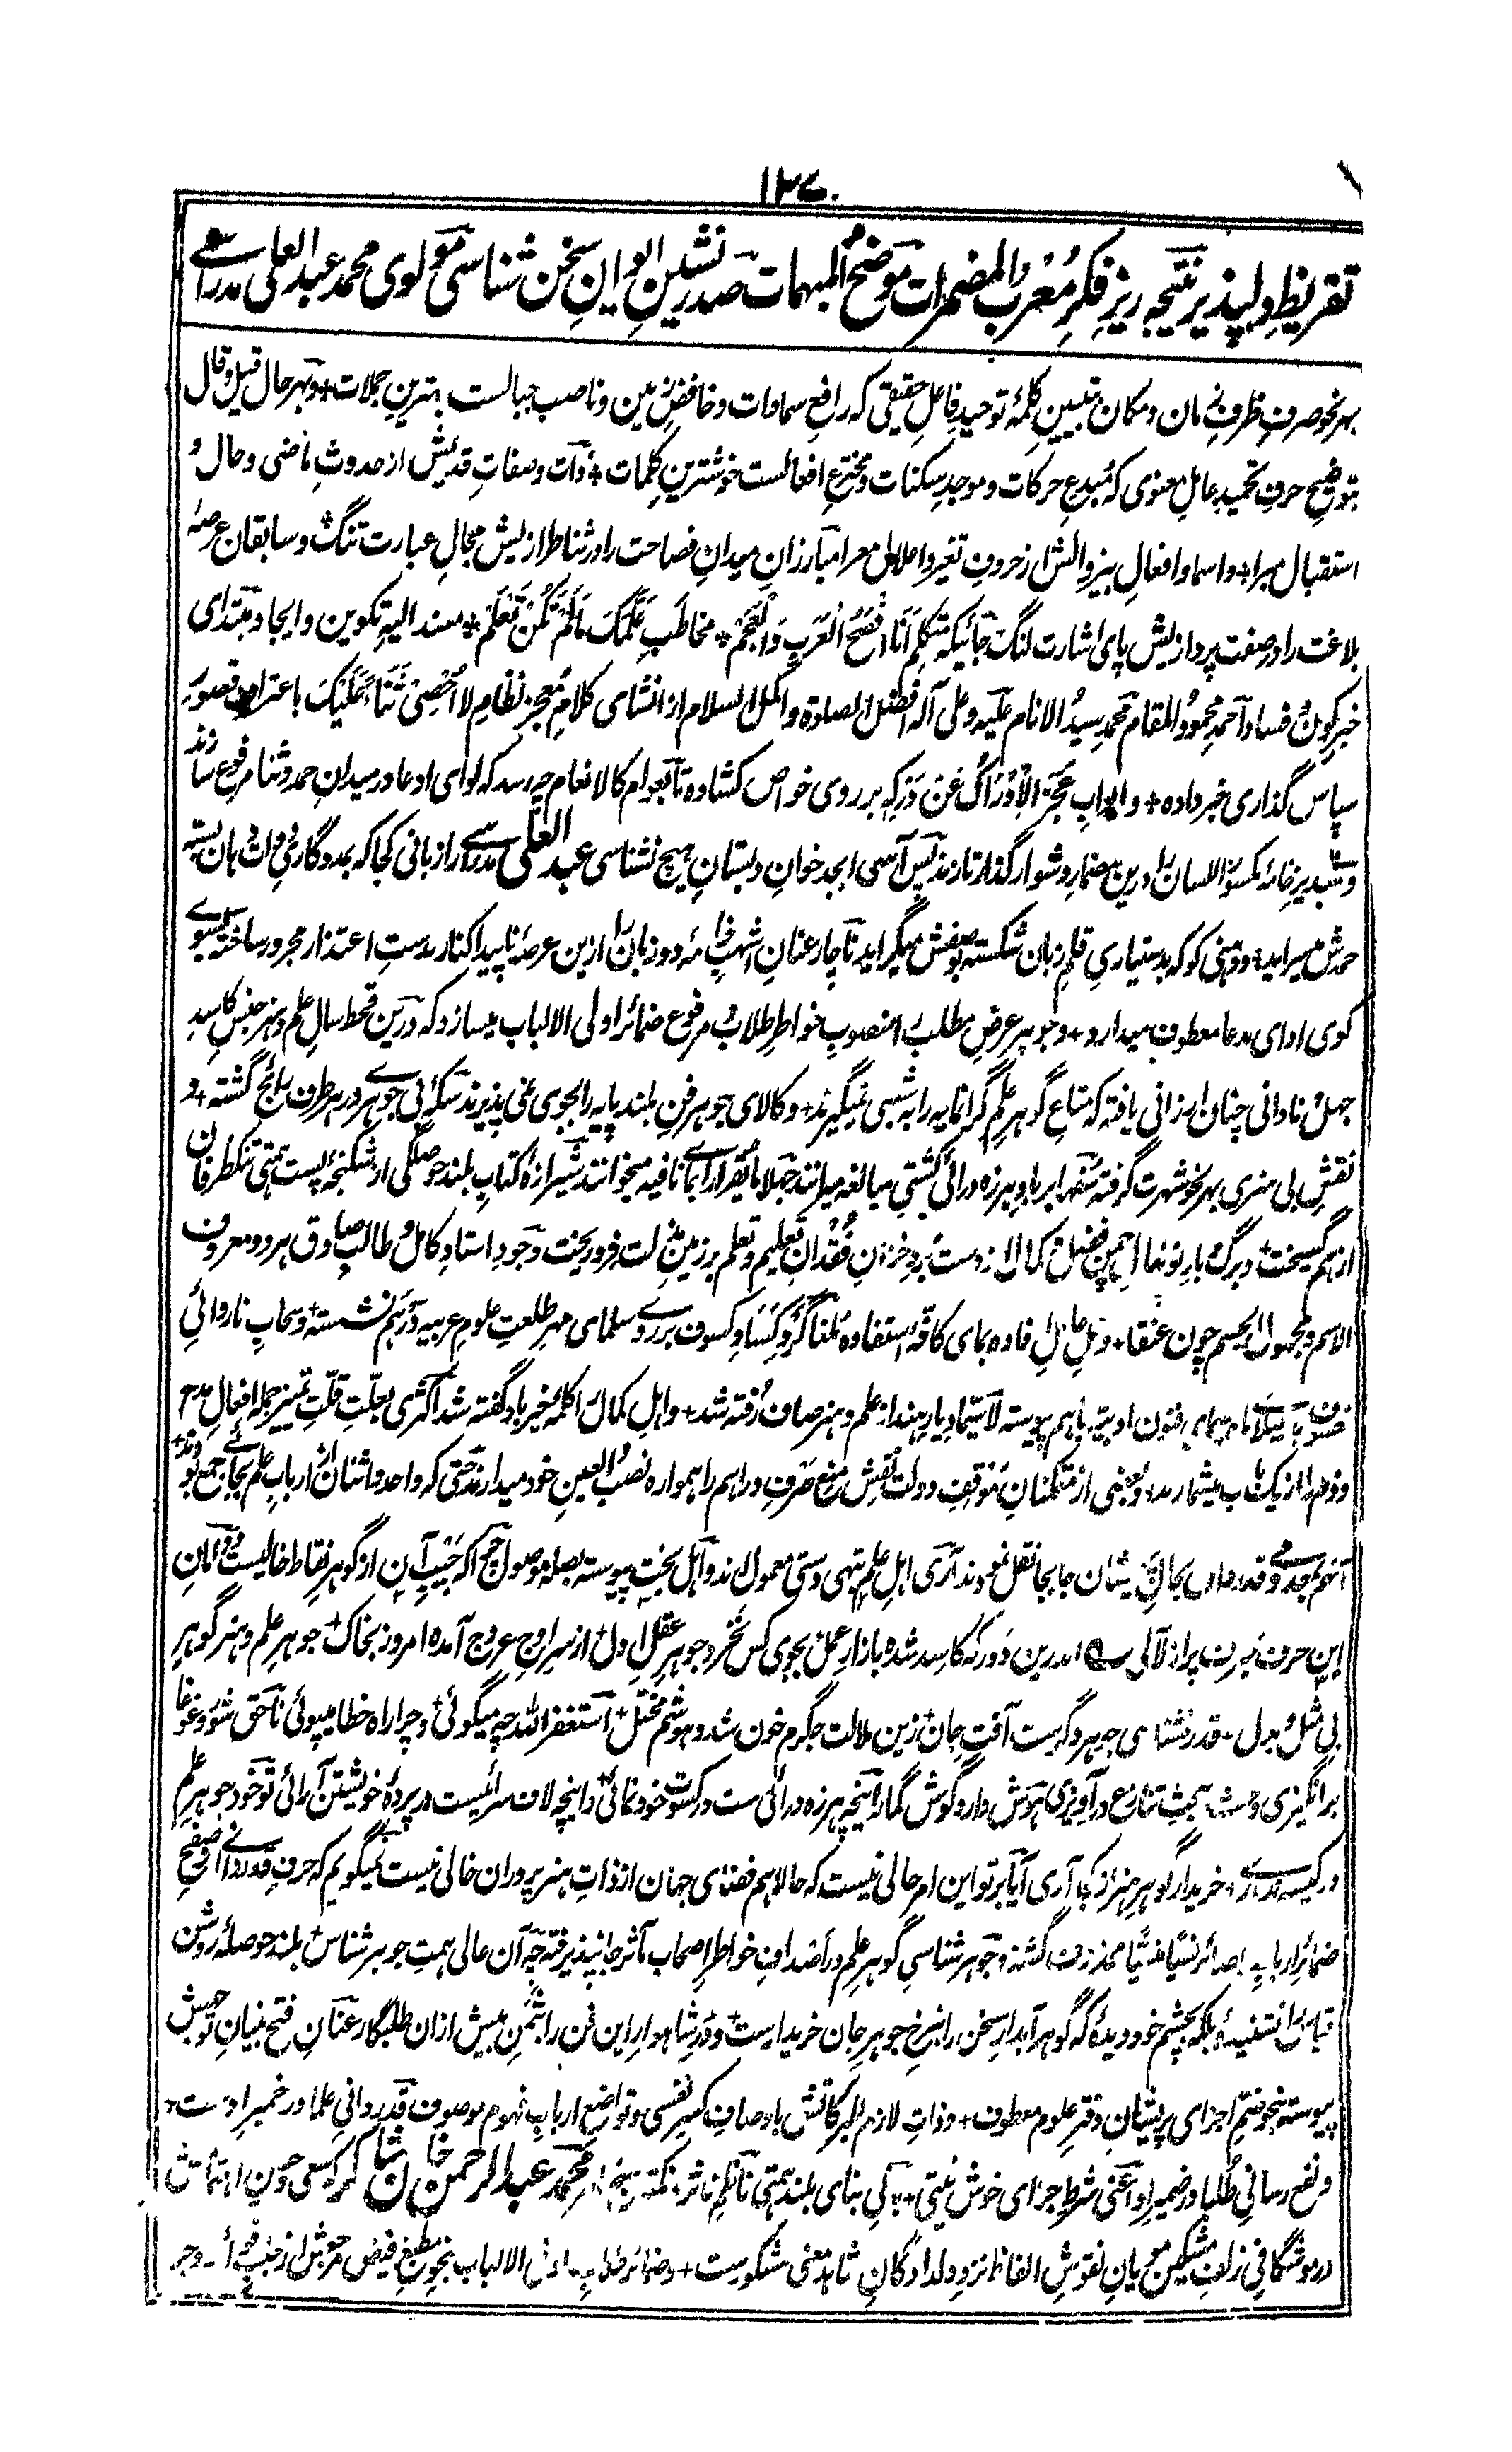 ۱۲۷
تقریظِ دلپذیر نتیجہ ریزِ فکرِ مُعربُ المضمرات موَضحُ المبہمات صدر نشینِ ایوانِ سخن شناسی مولوی محمد عبد العلی مدراسی
بہر نحو صرفِ ظرفِ زمان و مکان بتبیینِ کلمۂ توحیدِ فاعلِ حقیقی کہ رافعِ سماوات و خافضِ زمین و ناصب جبالست بہترینِ جملات + وبہر حال قیل وقال
بتوضیحِ حرفِ تحمیدِ عاملِ معنوی کہ مُبدعِ حرکات و موجدِ سکنات و مخترعِ افعالست خوشترینِ کلمات + ذات و صفاتِ قدیمش از حدوثِ ماضی وحال و
استقبال مبرا + واسما وافعالِ بیزوالش از حروفِ تغیر واعلال معرا مبارزانِ میدانِ فصاحت را در ثنا طرازیش مجالِ عبارت تنگ و سابقان عرصۂ
بلاغت را در صفت پردازیش پای اشارت لنگ جائیکہ متکلمِ اَنَا اَفْصَحُ الْعَرَبِ وَالْعَجَمْ + مخاطَبِ عَلَّمَکَ مَالَمْ تَکُنْ تَعْلَمْ + مسند الیہِ تکوین وایجاد مبتدای
خبرِ کون و فساد احمدِ محمودُ المقام محمد سیدُ الانام علیہ وعلی آلہ افضل الصلوۃ واکمل السلام از انشای کلامِ مُعجز نظامِ لا اُحْصِیْ ثَنَاءً عَلَیْکَ باعترافِ قصورِ
سپاس گذاری خبر داده + و ابوابِ عَجْزِ الْاِدْرَاکِ عَنْ دَرْکِہٖ بر روی خواص کشاده تا بعوام کالانعام چہ رسد کہ لوای ادعا در میدانِ حمد وثنا مرفوع سازند
وشبدیزِ خامۂ مکسورُ اللسان را درین مضمارِ دشوار گذار تازند پس آسی ابجد خوانِ دبستانِ ہیچ نشناسی عبد العلی مدراسی را زبانی کجا کہ بمددگاریِ دہان بستہ
حمدش سراید + و ذہنی کو کہ بدستیاریِ قلمِ زبان شکستہ بوصفش گراید ناچار عنانِ اشہبِ خامۂ دو زبان را ازین عرصۂ ناپیدا کنار بدستِ اعتذار مجرور ساختہ بسوی
کوی ادای مدعا معطوف میدارد + وجوہرِ عرضِ مطلب را منصوبِ خواطرِ طلاب و مرفوعِ ضمائر اولی الالباب میسازد کہ درین قحط سالِ علم وہنر جنسِ کاسدِ
جہل و نادانی چنان ارزانی یافتہ کہ متاعِ گوہرِ علمِ گرانمایہ را بہ شبہی نمیگیرند + و کالای جوہر فنِ بلند پایہ را بجوی نمی پذیرند سکۂ بی جوہری در ہر طرف رائج گشتہ + و
نقشِ بی ہنری بہر نحو شہرت گرفتہ سُفہا بر بادِ ہرزہ درائی کشتیِ مبالغہ میرانند جہلا میخوانند شیرازۂ کتابِ بلند حوصلگی از شکنجۂ پست ہمتی تنکظرفان
از ہم گسیخت + و برگ و بارِ نونہال چمنِ فضل و کمال از دست بردِ خزانِ فُقدانِ تعلیم وتعلم بر زمینِ ذلت فرو ریخت وجودِ استادِ کامل و طالبِ صادق ہر دو معروف
الاسم ومجہول الجسم چون عنقا + کسوف بر روی سلمای مہر طلعتِ علومِ عربیہ درہم نشستہ + وسحابِ ناروائیِ
فنون ادبیہ باہم پیوستہ لاسیما دیارِ ہند از علم وہنر صاف رُفتہ شد + واہلِ کمال را کلمۂ خیر باد گفتہ شد اکثری بعلتِ قلتِ تمییز جملہ افعالِ مدح
وذم را از یک باب میشمارند + وبعضی از متمکنانِ موقفِ دولت نقشِ منعِ صَرفِ دراہم را ہمواره نصبُ العینِ خود میدارند حتی کہ واحد و اثنان از اربابِ علم بجائی جمع بودند +
جابجا نقل نمودند آری اہلِ علم بتہی دستی معمول اند و اہلِ بخت پیوستہ بصلہ موصول
این حرف پر از لآلی درین دَور کہ کاسد شده بازارِ عمل بجوی کس نخرد جوہرِ عقلِ اول + از سرِ اوجِ عروج آمده امروز بخاک + جوہرِ علم وہنر گوہرِ
بی مثل و بدل - قدر نشناسیِ جوہر دگرست آفتِ جان + زین ملالت جگرم خون شد و ہوشم مختل + استغفر اللہ چہ میگوئی + وچرا راہِ خطا میپوئی ناحق شور وغوغا
بر انگیزی تنازع در آویزی ہوش دار و گوش گمار اینچہ ہرزہ درائی ست در کسوتِ خود نمائی + واینچہ لاف سرائیست در پردۂ خویشتن آرائی تو خود جوہرِ علم
در کیسہ نداری + خریدارِ گوہرِ ہنر از کجا آری آیا برتو این امر حالی نیست کہ حالا ہم فضای جہان از ذاتِ ہنر پروران خالی نیست نمیگویم کہ حرفِ قدردانی از صفحِ
ضمائرِ اربابِ بصائر نسیًا منسیًّا محذوف گشتہ + وجوہر شناسیِ گوہرِ علم در اصدافِ خواطرِ اصحاب مآثر جا نپذیرفتہ چہ آن عالی ہمت جوہر شناس + بلند حوصلہ روشن
قیاس را نشنیدۂ + بلکہ بچشمِ خود دیدۂ کہ گوہرِ آبدارِ سخن را بنرخِ جوہرِ جان خریدارست + ودرِ شاہوارِ این فن را بثمنِ بیش ازان طلبگار عنانِ فتح بنیانِ توجہش
پیوستہ بنحوِ ضمِ اجزای پریشانِ دفترِ علوم معطوف + وذاتِ لازم البرکاتش باوصافِ کسرِ نفسی وتواضعِ اربابِ فہوم موصوف قدردانیِ علما در خمیرِ اوست +
ونفع رسانیِ طلبا در ضمیرِ او اعنی شرطِ جزای خوش نیتی + بانیِ بنای بلند ہمتی ناظمِ ناثر + نکتہ سنج محمد عبد الرحمن خان شاکر کہ سعی
در موشگافیِ زلفِ مشکین مویانِ نقوشِ الفاظ نزدِ دلدادگانِ شاہدِ معنی مشکورست + اولی الالباب بنحوِ مطبعِ فیض